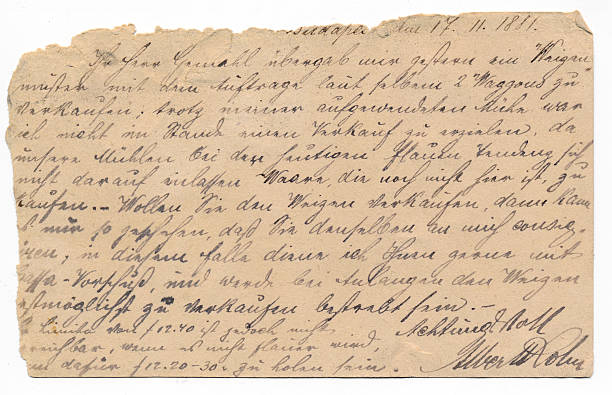 Budapest, am 17. 11. 1881.
Ihr Herr Gemahl übergab mir gestern ein Weizen
muster mit dem Auftrage laut selbem 2 Waggons zu
verkaufen; trotz meiner aufgewendeten Mühe war
ich nicht im Stande einen Verkauf zu erzielen, da
unsere Mühlen bei der heutigen flauen Tendenz sich
nicht darauf einlassen Waare, die noch nicht hier ist, zu
kaufen. — Wollen Sie den Weizen verkaufen, dann kann
es nur so geschehen, daß Sie denselben an mich consig-
iren; in diesem Falle diene ich Ihnen gerne mit
assa-Vorschuß, und werde bei Anlangen den Weizen
estmöglichst zu verkaufen bestrebt sein. —
Limite von f 12.40 ist jedoch nicht
reichbar, wenn es nicht flauer wird
dafür f 12.20-30. zu holen sein.
Achtungsvoll
Albert